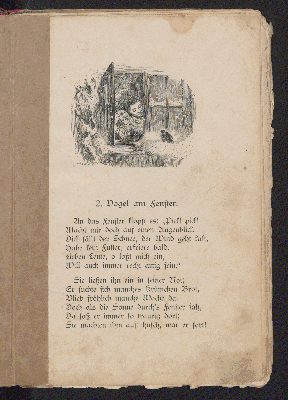 2. Vogel am Fenster.
An das Fenster klopft es: „Pick! pick!
Macht mir doch auf einen Augenblick!
Dick fällt der Schnee, der Wind geht kalt,
Habe kein Futter, erfriere bald.
Lieben Leute, o laßt mich ein,
Will auch immer recht artig sein.“
Sie ließen ihn ein in seiner Not;
Er suchte sich manches Krümchen Brot,
Blieb fröhlich manche Woche da.
Doch als die Sonne durch's Fenster sah,
Da saß er immer so traurig dort;
Sie machten ihm auf: husch, war er fort!